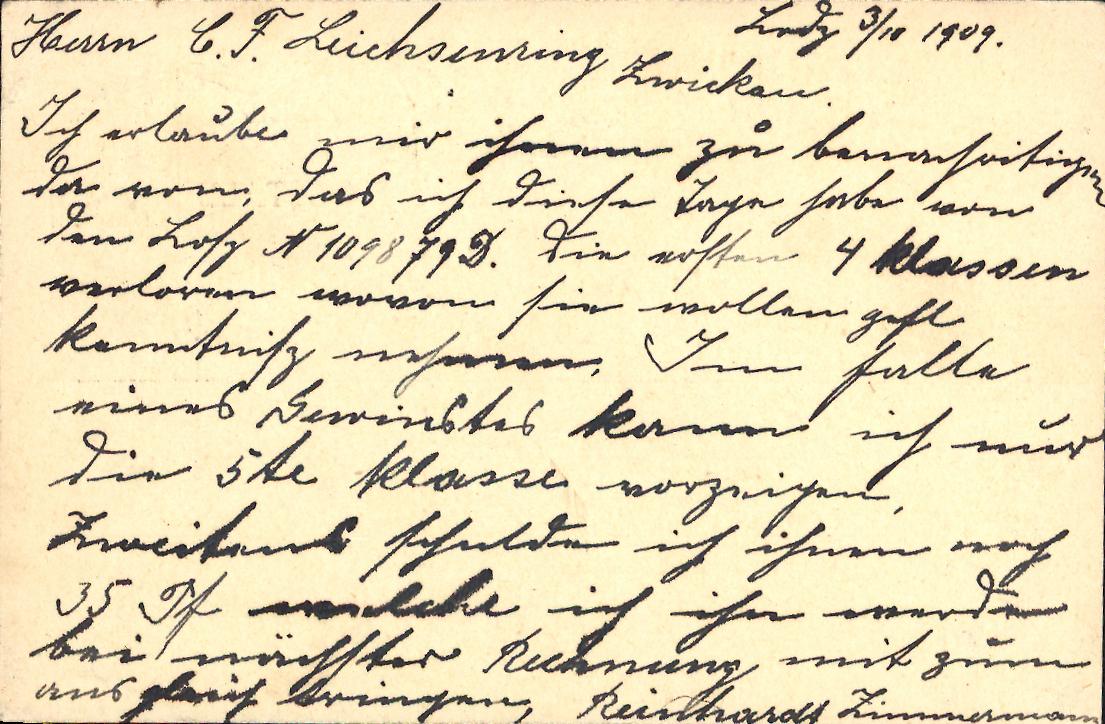 Lodz 3/10 1909.
Herrn C. F. Leichsenring
Zwickau.
Ich erlaube mir ihnen zu benachritigen
da von, das ich diese Tage habe von
den Losz N 109879 D. die ersten 4 klassen
verloren wovon sie wollen gefl
kenntnisz nehmen. Im falle
eines Gewinstes kann ich nur
die 5te klasse vorzeigen,
Zweitens schulde ich ihnen noch
35 Pf welche ich ihn werde
bei nächster Rechnung mit zum
aus gleich bringen, Reinhardt Zimmermann